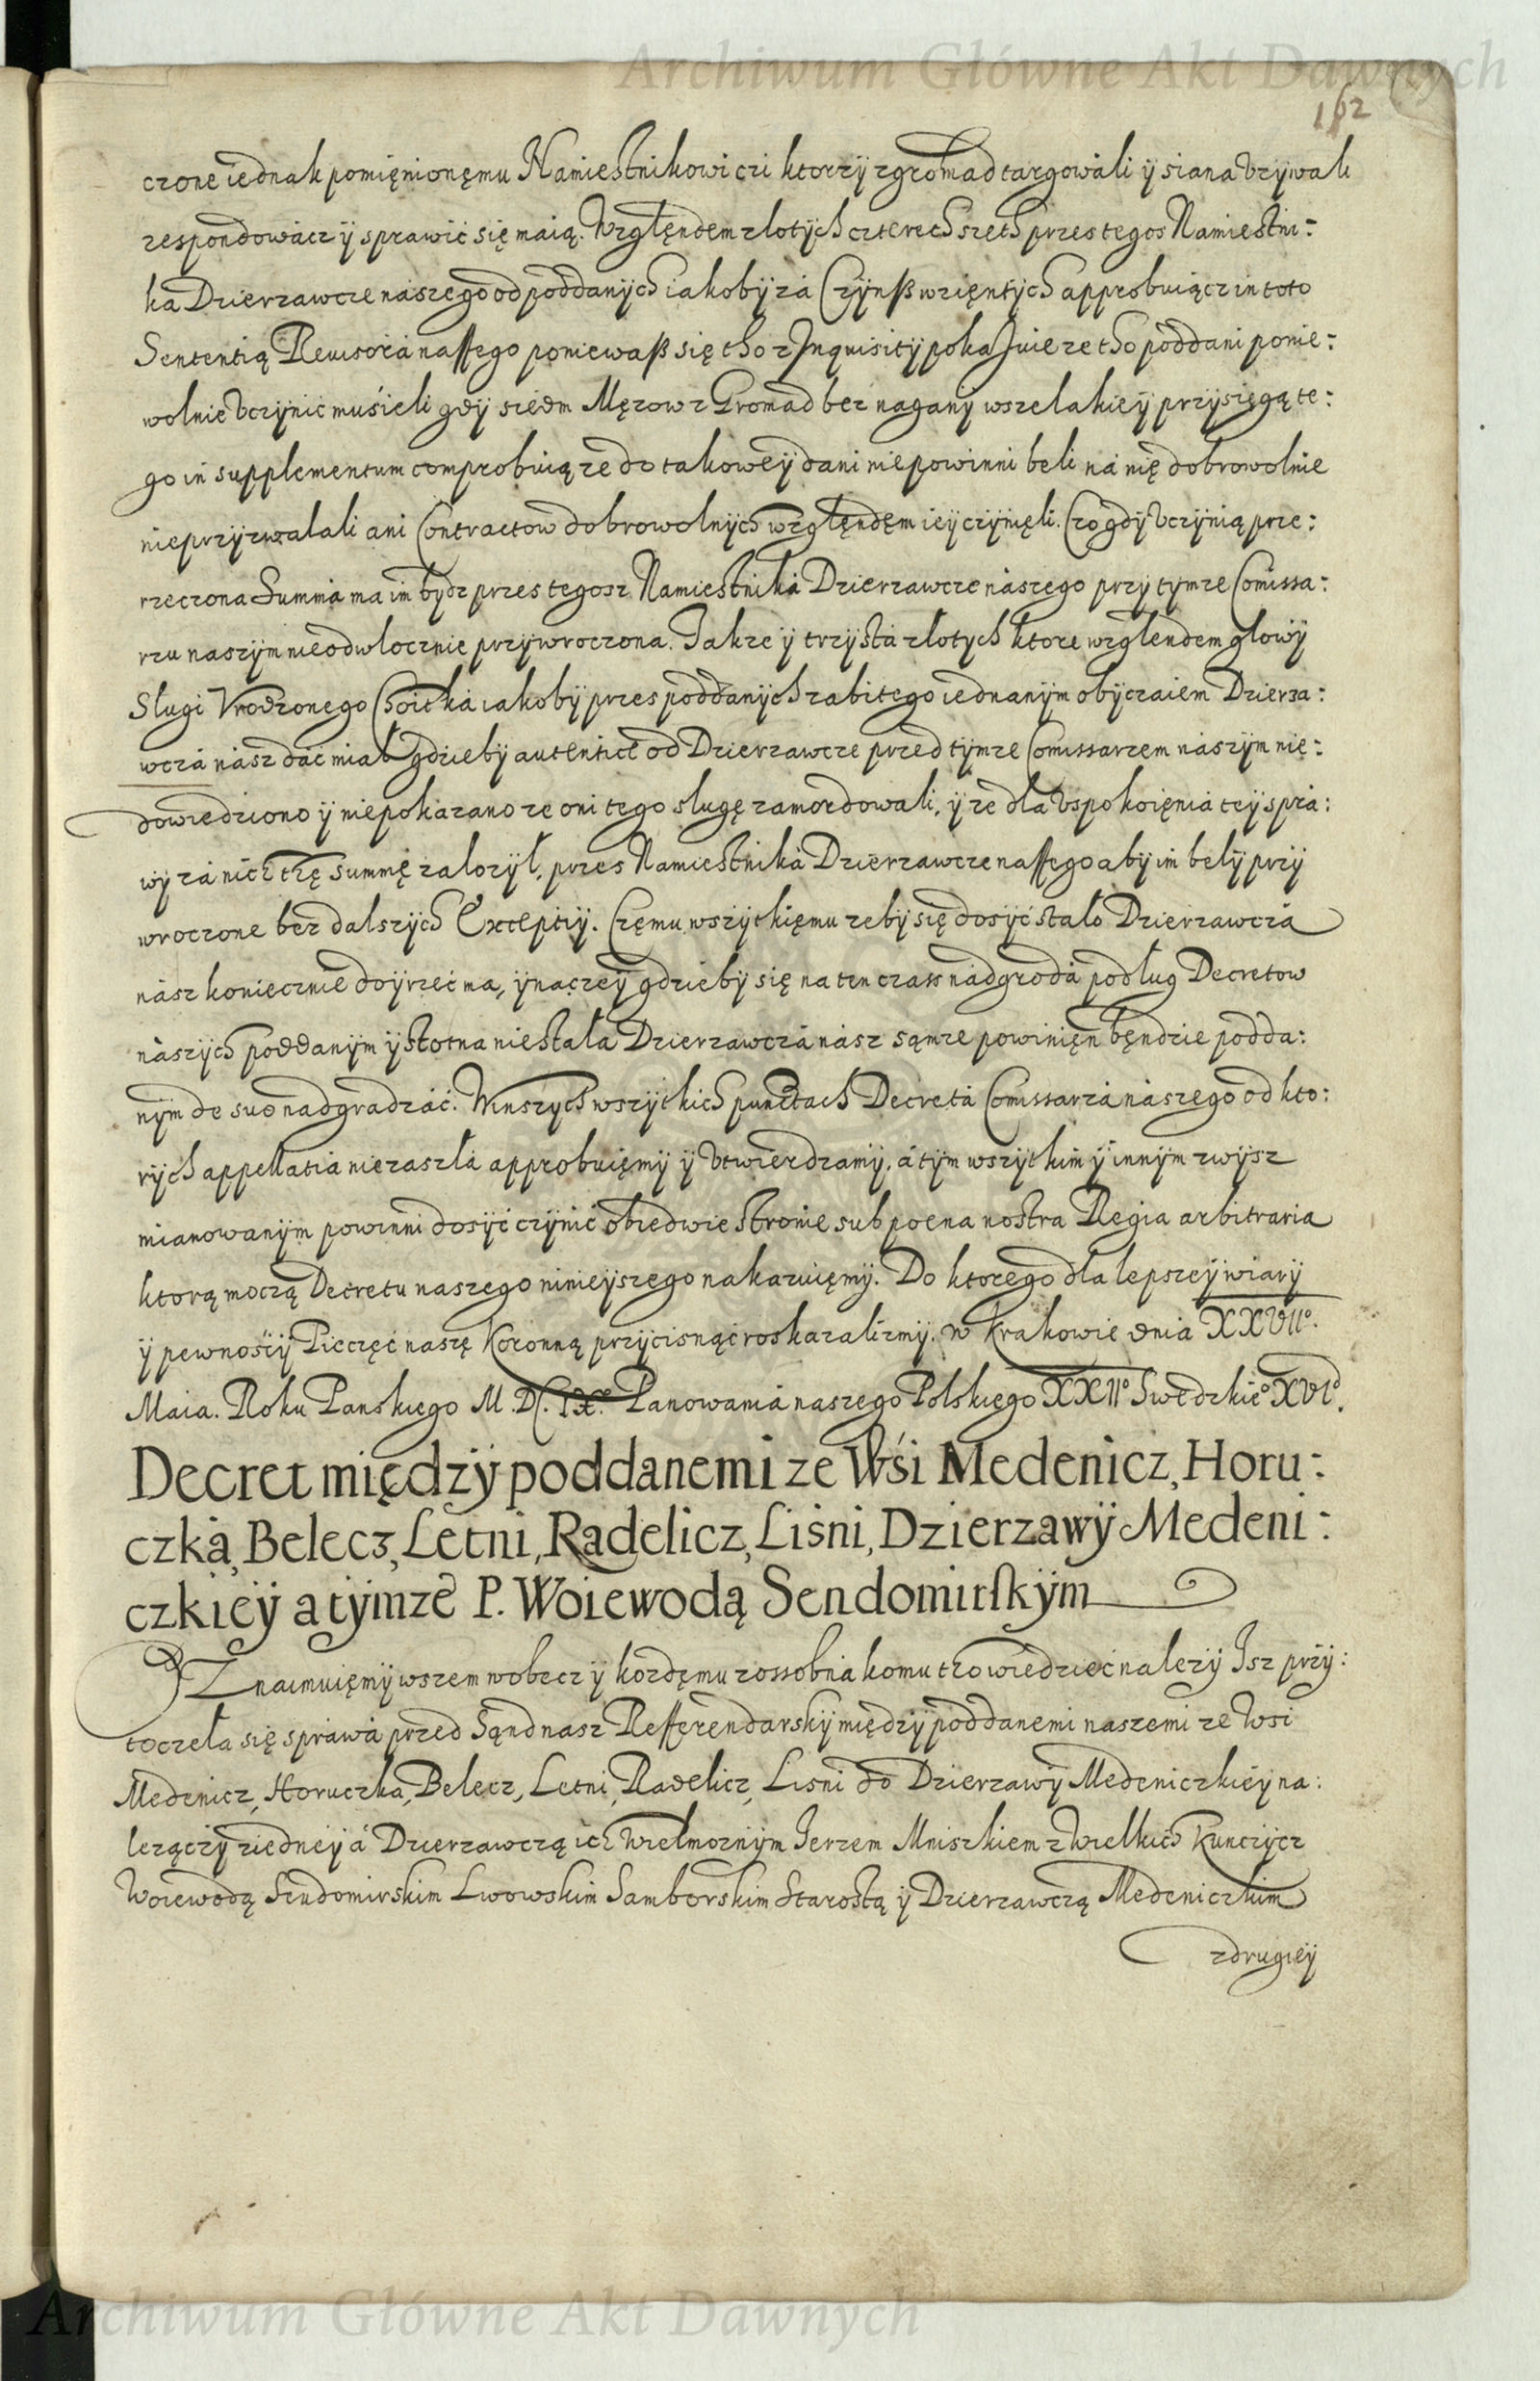 Archiwum Główne Akt Dawnych
162
czone iednak pomięnionęmu Namiestnikowi czi ktorzÿ z gromad targowali ÿ siana vzÿwali
respondowacz ÿ sprawić się maią. Względem złotÿch czterech seth przes tegos Namiestni:
ka Dzierzawcze naszego od poddanÿch iakobÿ za Czÿnß wzięntÿch approbuiącz in toto
Sententią Reuisora naßego poniewaß się tho z Inquisitÿ pokazuie ze tho poddani ponie:
wolnie vczÿnić musieli gdÿ siedm Męzow z Gromad bez naganÿ wszelakieÿ przÿsięgą te:
go in supplementum comprobuią ze do takoweÿ dani niepowinni beli na nię dobrowolnie
nieprzÿzwalali ani Contractow dobrowolnÿch względęm ieÿ czÿnięli. Czo gdÿ vczÿnią prze:
rzeczona Summa ma im bÿdz przes tegosz Namiestnika Dzierzawcze naszego przÿ tÿmze Comissa:
rzu naszÿm nieodwłocznie przÿwroczona. Takze ÿ trzÿsta złotÿch ktore wzglendem głowÿ
Sługi Vrodzonego Choicka iakobÿ przes poddanÿch zabitego iednanÿm obÿczaiem Dzierza:
wcza nasz dać miał gdziebÿ autentice od Dzierzawcze przed tÿmze Comissarzem naszÿm nie:
dowiedziono ÿ niepokazano ze oni tego sługę zamordowali, ÿ ze dla vspokoięnia teÿ spra:
wÿ za nich tę summę załozÿł, przes Namiestnika Dzierzawcze naßego abÿ im belÿ przÿ
wroczone bez dalszÿch Exceptiÿ. Częmu wszÿtkięmu zebÿ się dosÿć stało Dzierzawcza
nasz koniecznie doÿrzeć ma, ÿnaczeÿ gdziebÿ się na ten czass nadgroda podług Decretow
naszÿch poddanÿm ÿstotna niestała Dzierzawcza nasz sąmze powinięn będzie podda:
nÿm de suo nadgradzać. Winszÿch wszÿtkich punctach Decreta Comissarza naszego od kto:
rÿch appellatia niezaszła approbuięmÿ ÿ vtwierdzamÿ, a tÿm wszÿtkim ÿ innÿm zwÿsz
mianowanÿm powinni dosÿć czÿnić obiedwie stronie sub poena nostra Regia arbitraria
ktorą moczą Decretu naszego ninieÿszego nakazuięmÿ. Do ktorego dla lepszeÿ wiarÿ
ÿ pewnościÿ Pieczęć naszę koronną przÿcisnąć roskazalizmÿ. W Krakowie dnia XXVIIº.
Maia. Roku Panskiego M.DC.IXº. Panowania naszego Polskiego XXIIº Swedzkieº XVIº.
Decret międzÿ poddanemi ze Wśi Medenicz, Horu:
czka, Belecz, Letni, Radelicz, Liśni, Dzierzawÿ Medeni:
czkieÿ a tÿmze P. Woiewodą Sendomirskÿm
Znaimuięmÿ wszem wobecz ÿ kozdęmu zossobna komu tho wiedzieć nalezÿ Isz przÿ:
toczeła się sprawa przed Sąnd nasz Refferendarskÿ międzÿ poddanemi naszemi ze Wsi
Medenicz, Horuczka, Belecz, Letni, Radelicz, Lisni do Dzierzawÿ Medeniczkieÿ na:
lezączÿ z iedneÿ a Dzierzawczą ich Wielmoznÿm Jerzem Mniszkiem z Wielkich Kunczÿcz
Woiewodą Sendomirskim Lwowskim Samborskim Starostą ÿ Dzierzawczą Medeniczkim
z drugieÿ
Archiwum Główne Akt Dawnych